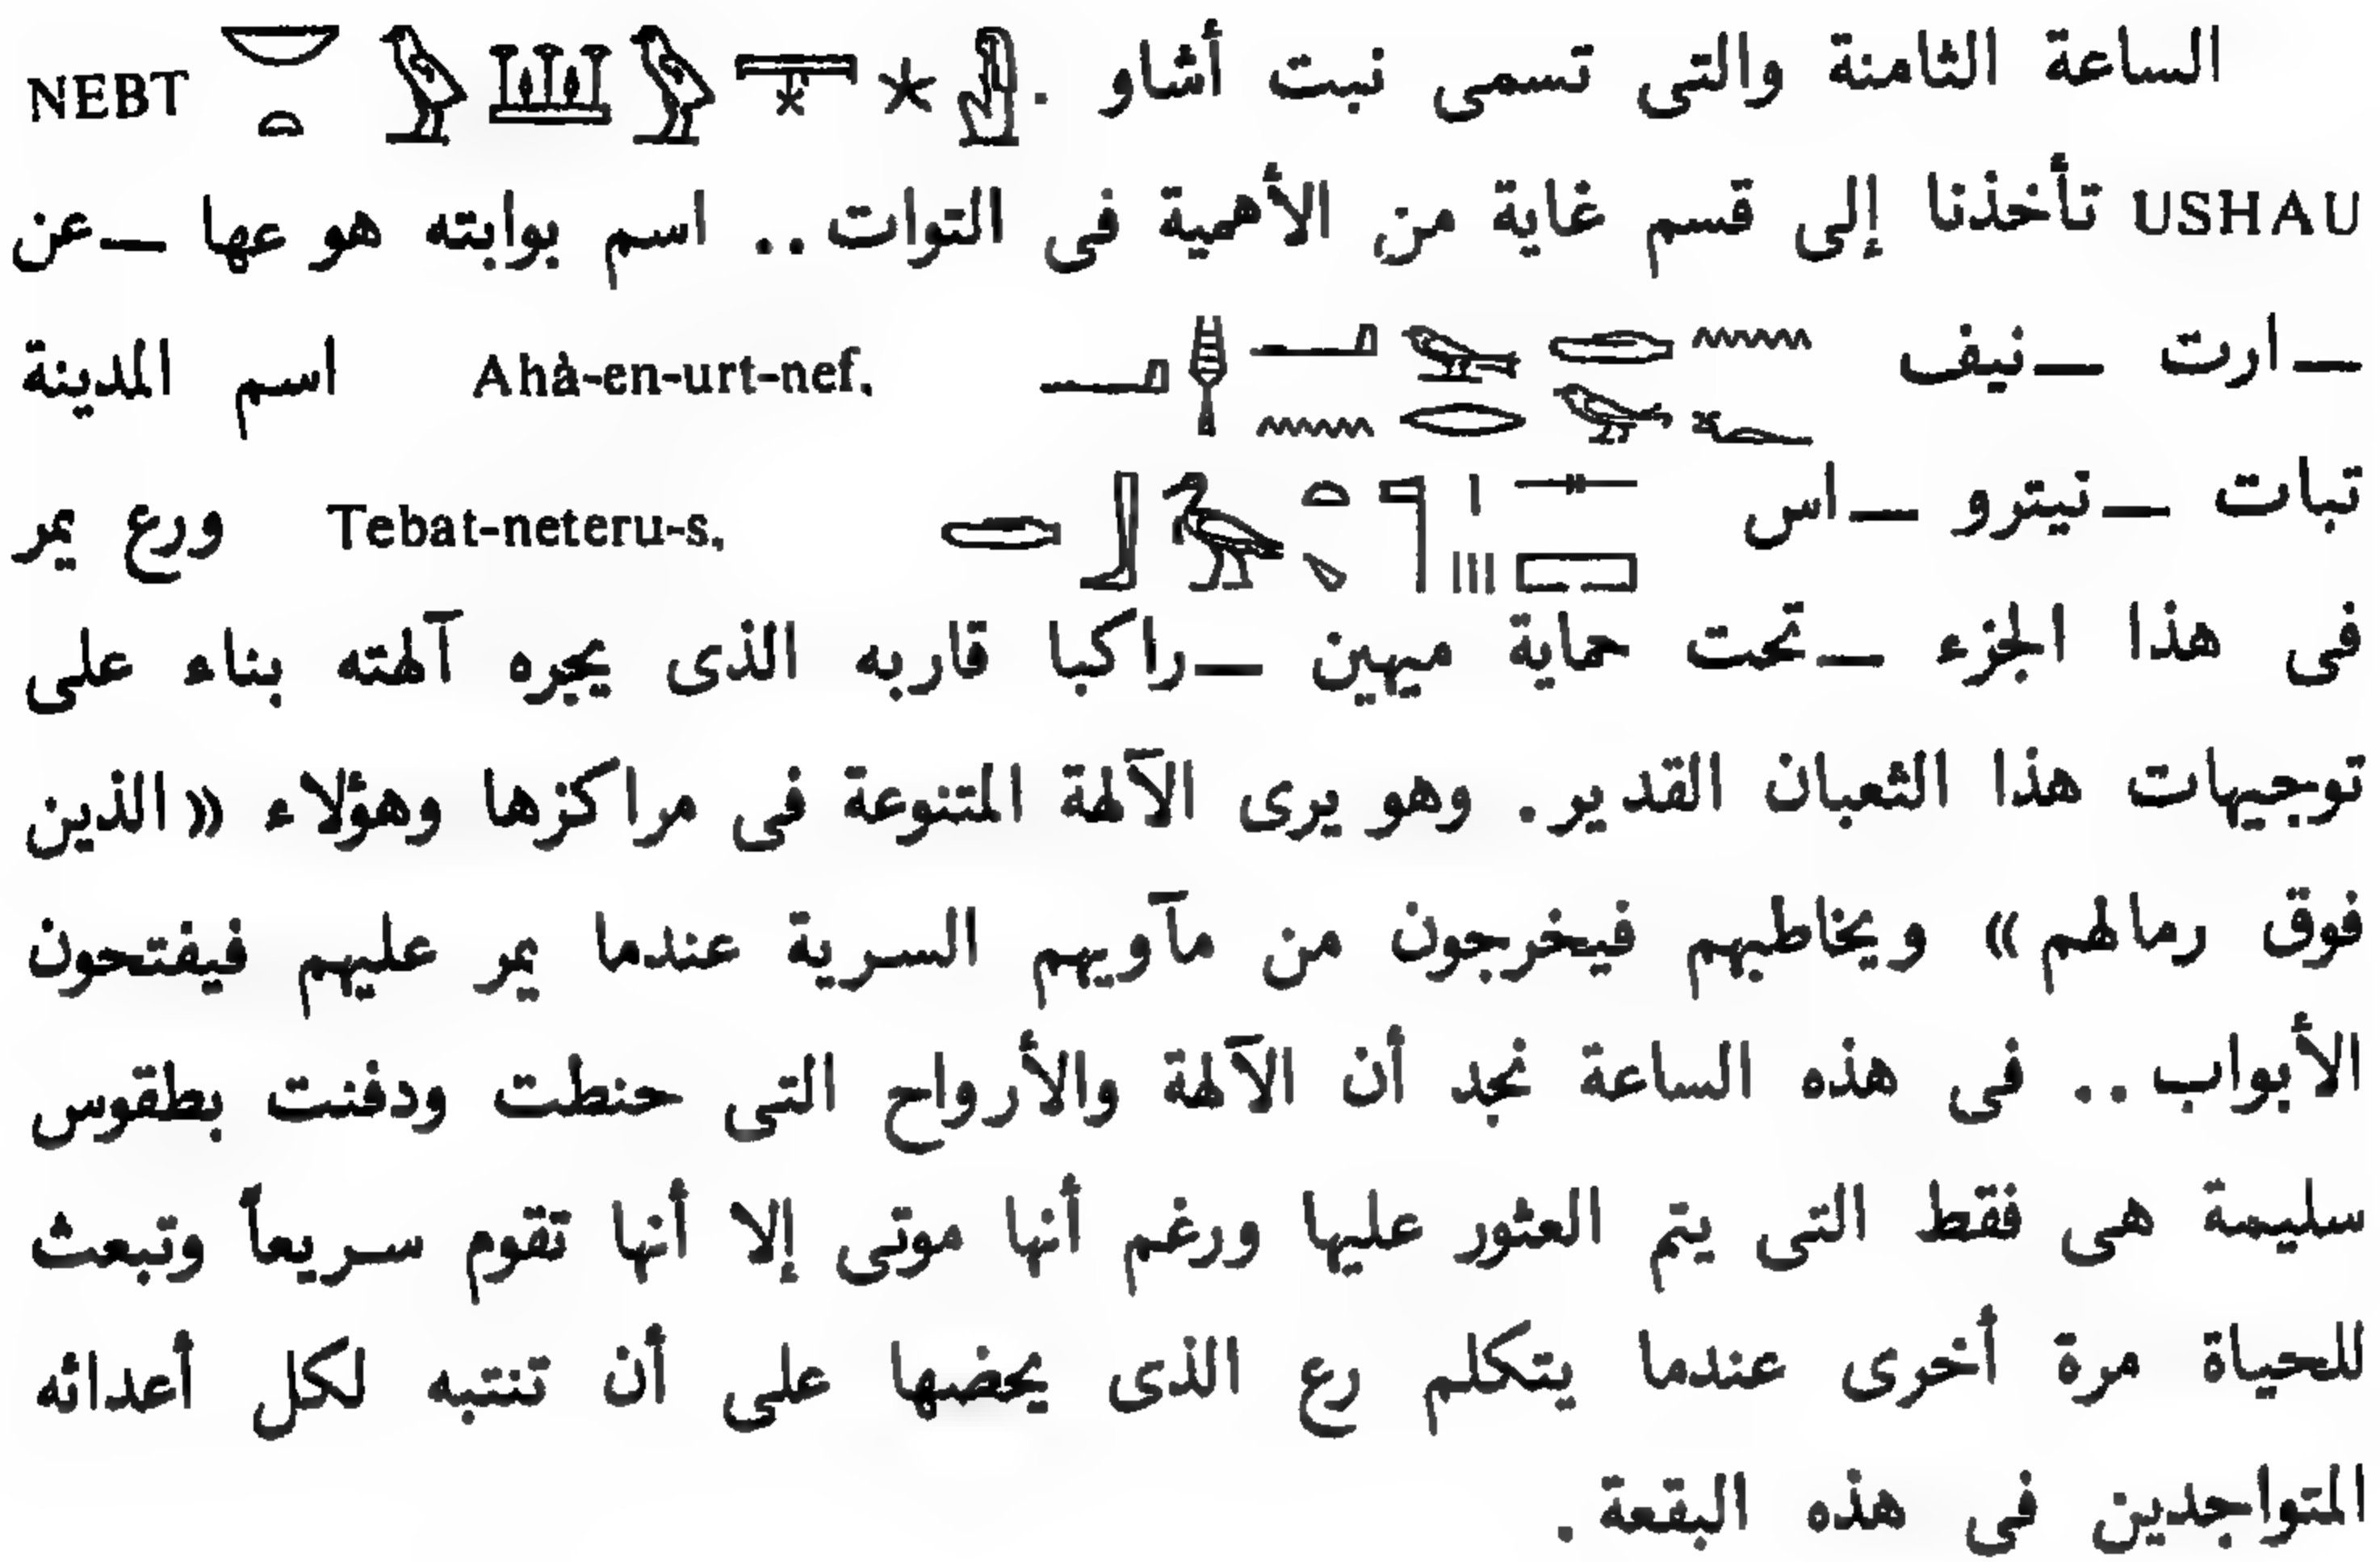 الساعة الثامنة والتى تسمى نبت أشاو . NEBT
USHAU تأخذنا إلى قسم غاية من الأهمية فى التوات .. اسم بوابته هو عها ــ عن
ــ ارت ــ نيف Ahà-en-urt-nef. اسم المدينة
تبات ــ نيترو ــ اس Tebat-neteru-s. ورع يمر
فى هذا الجزء ــ تحت حماية ميهين ــ راكبا قاربه الذى يجره آلهته بناء على
توجيهات هذا الثعبان القدير . وهو يرى الآلهة المتنوعة فى مراكزها وهؤلاء « الذين
فوق رمالهم » ويخاطبهم فيخرجون من مآويهم السرية عندما يمر عليهم فيفتحون
الأبواب .. فى هذه الساعة نجد أن الآلهة والأرواح التى حنطت ودفنت بطقوس
سليمة هى فقط التى يتم العثور عليها ورغم أنها موتى إلا أنها تقوم سريعاً وتبعث
للحياة مرة أخرى عندما يتكلم رع الذى يحضها على أن تنتبه لكل أعدائه
المتواجدين فى هذه البقعة .